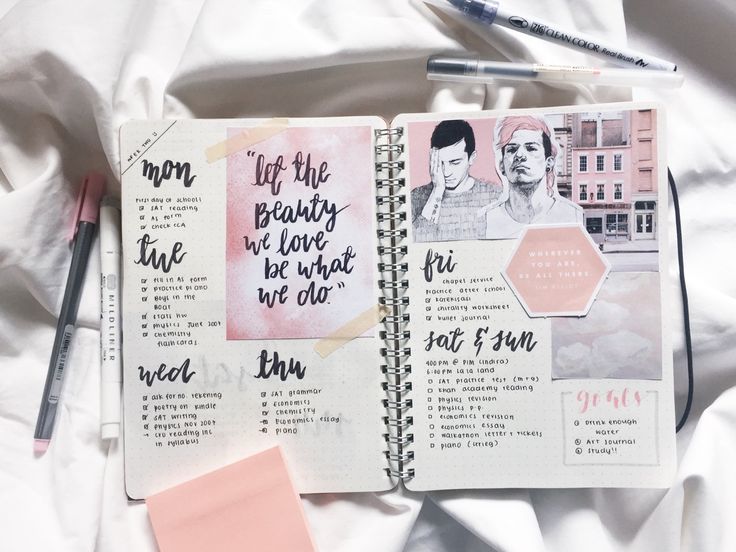 WEEK TWO
mon
First day of school!
SAT reading
AS form
check CCA
tue
fill in AS form
practice piano
Boys in the
Boat
stats hw
physics June 2009
chemistry
flashcards
wed
ask for no. rekening
poetry on kindle
SAT writing
physics Nov 2009
→ CFU reading INC
in syllabus
"let the
Beauty
we love
be what
we do."
thu
SAT grammar
economics
chemistry
economics essay
piano
fri
chapel service
practice after school
katekisasi
chirality worksheet
bullet journal
sat & sun
400 PM @ PIM (indira)
6:00 PM la la land
SAT practice test (mra)
khan academy reading
physics revision
physics p.p.
economics revision
economics essay
walkathon letter + tickets
piano (grieg)
WHEREVER
YOU ARE,
BE ALL THERE.
JIM ELLIOT
goals
① Drink enough
water
② Art journal
③ Study!!
MILDLINER
ZIG CLEAN COLOR Real Brush